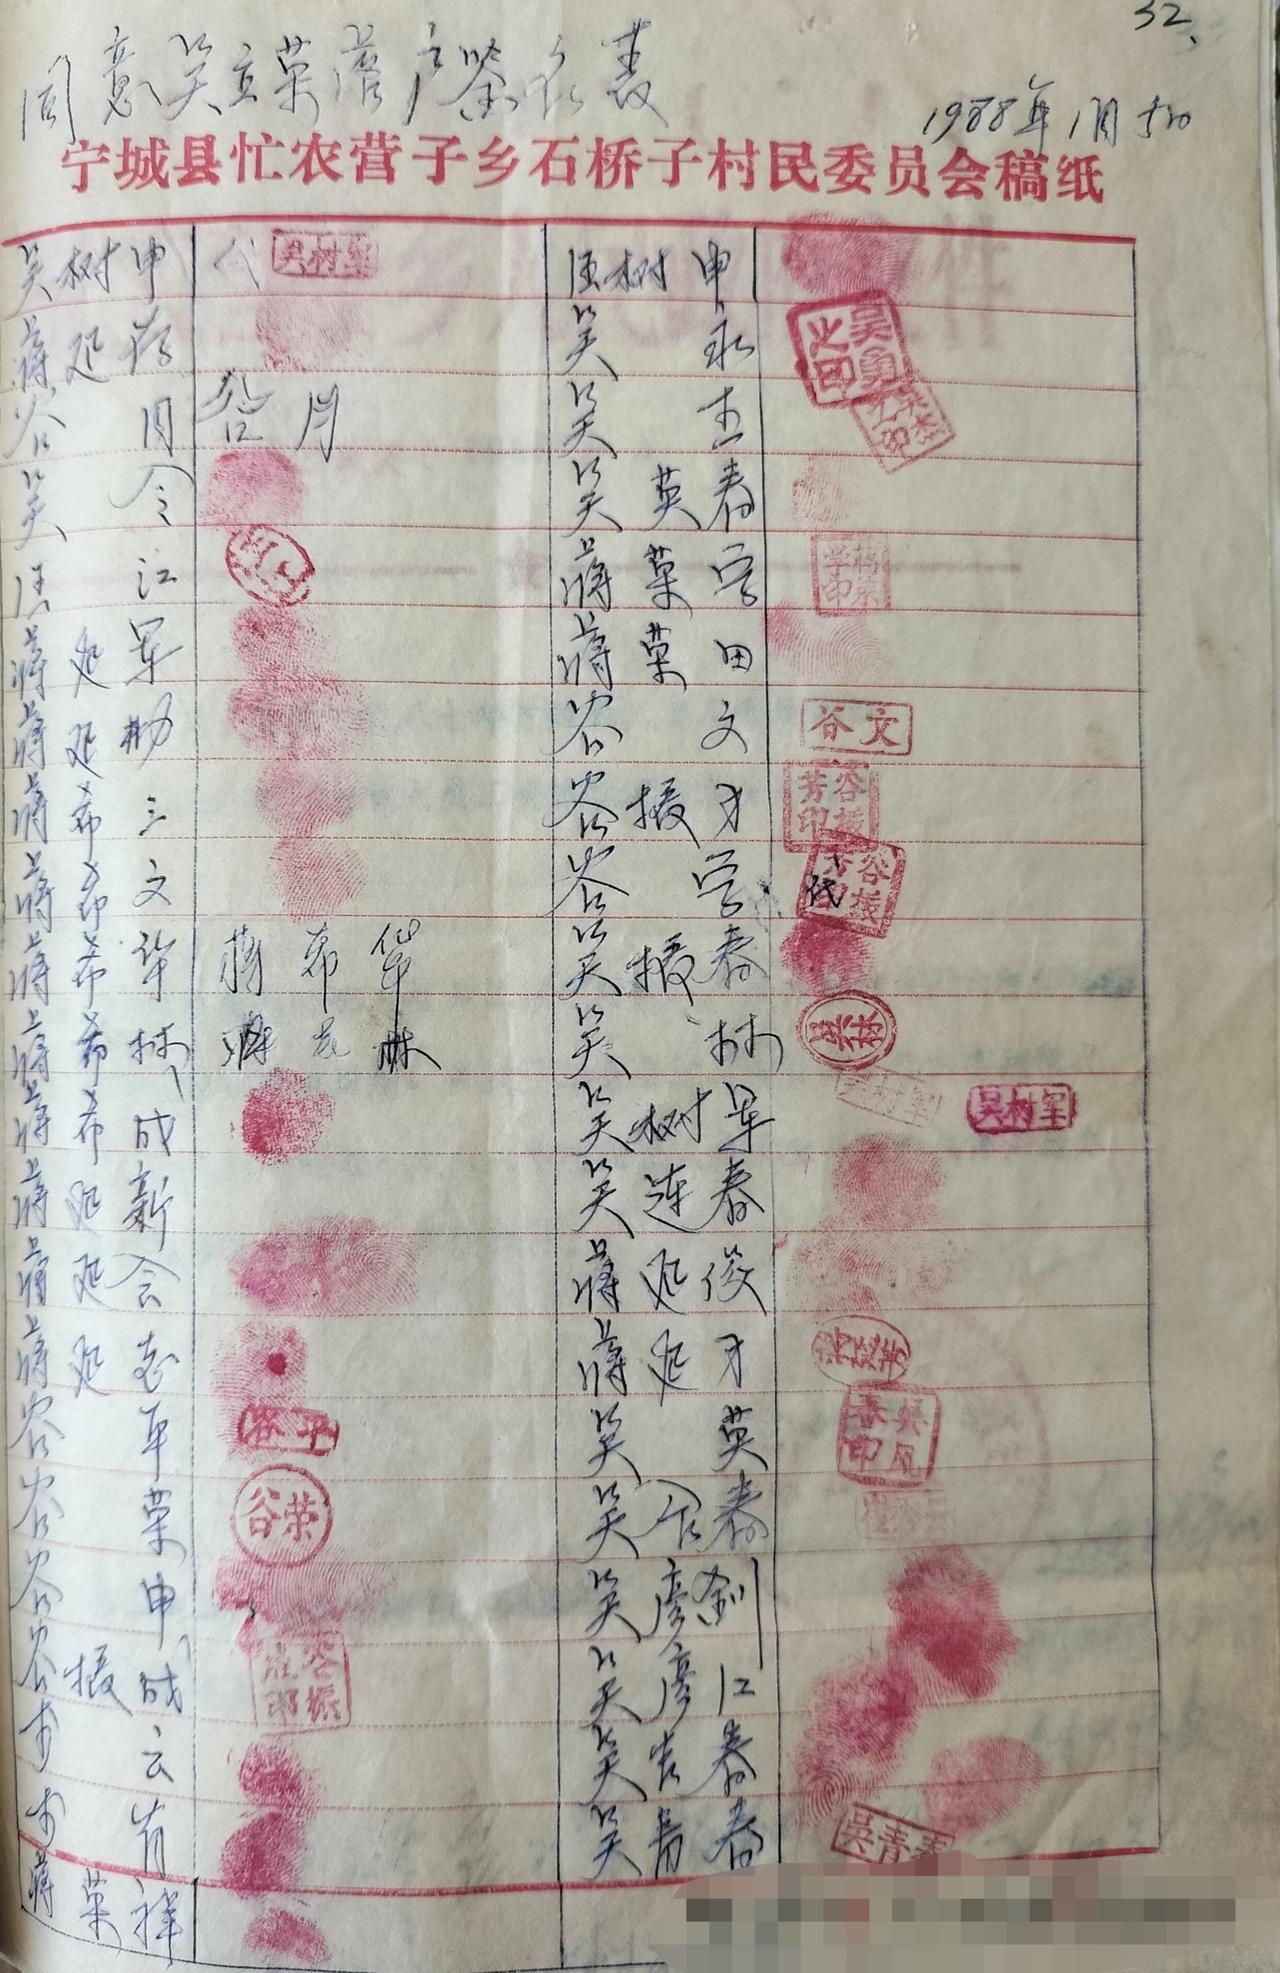 32
同意吴立荣落户签名表
1988年1月5日
宁城县忙农营子乡石桥子村民委员会稿纸
吴树申 代 吴树军 汪树申
蒋延 吴永 吴勇之印
谷月 谷月 吴志
吴令 吴英春
汪江 蒋荣学 蒋荣学印
蒋延军 蒋荣田
蒋延彬 谷文 谷文
蒋希三 谷振才 谷振芳印
蒋希文 谷学 代 谷振芳印
蒋希华 蒋希华 吴振春
蒋希林 吴林 吴林
蒋希成 吴树军 吴树军 吴树军
蒋延新 吴连春
蒋延会 蒋延俊
蒋延志 蒋延才
谷平 谷平 吴英 吴凤春印
谷荣 谷荣 吴合春
谷申 吴彦刚
谷振成 谷振成印 吴彦江
李云 吴吉春
李 吴青春 吴青春
蒋荣祥